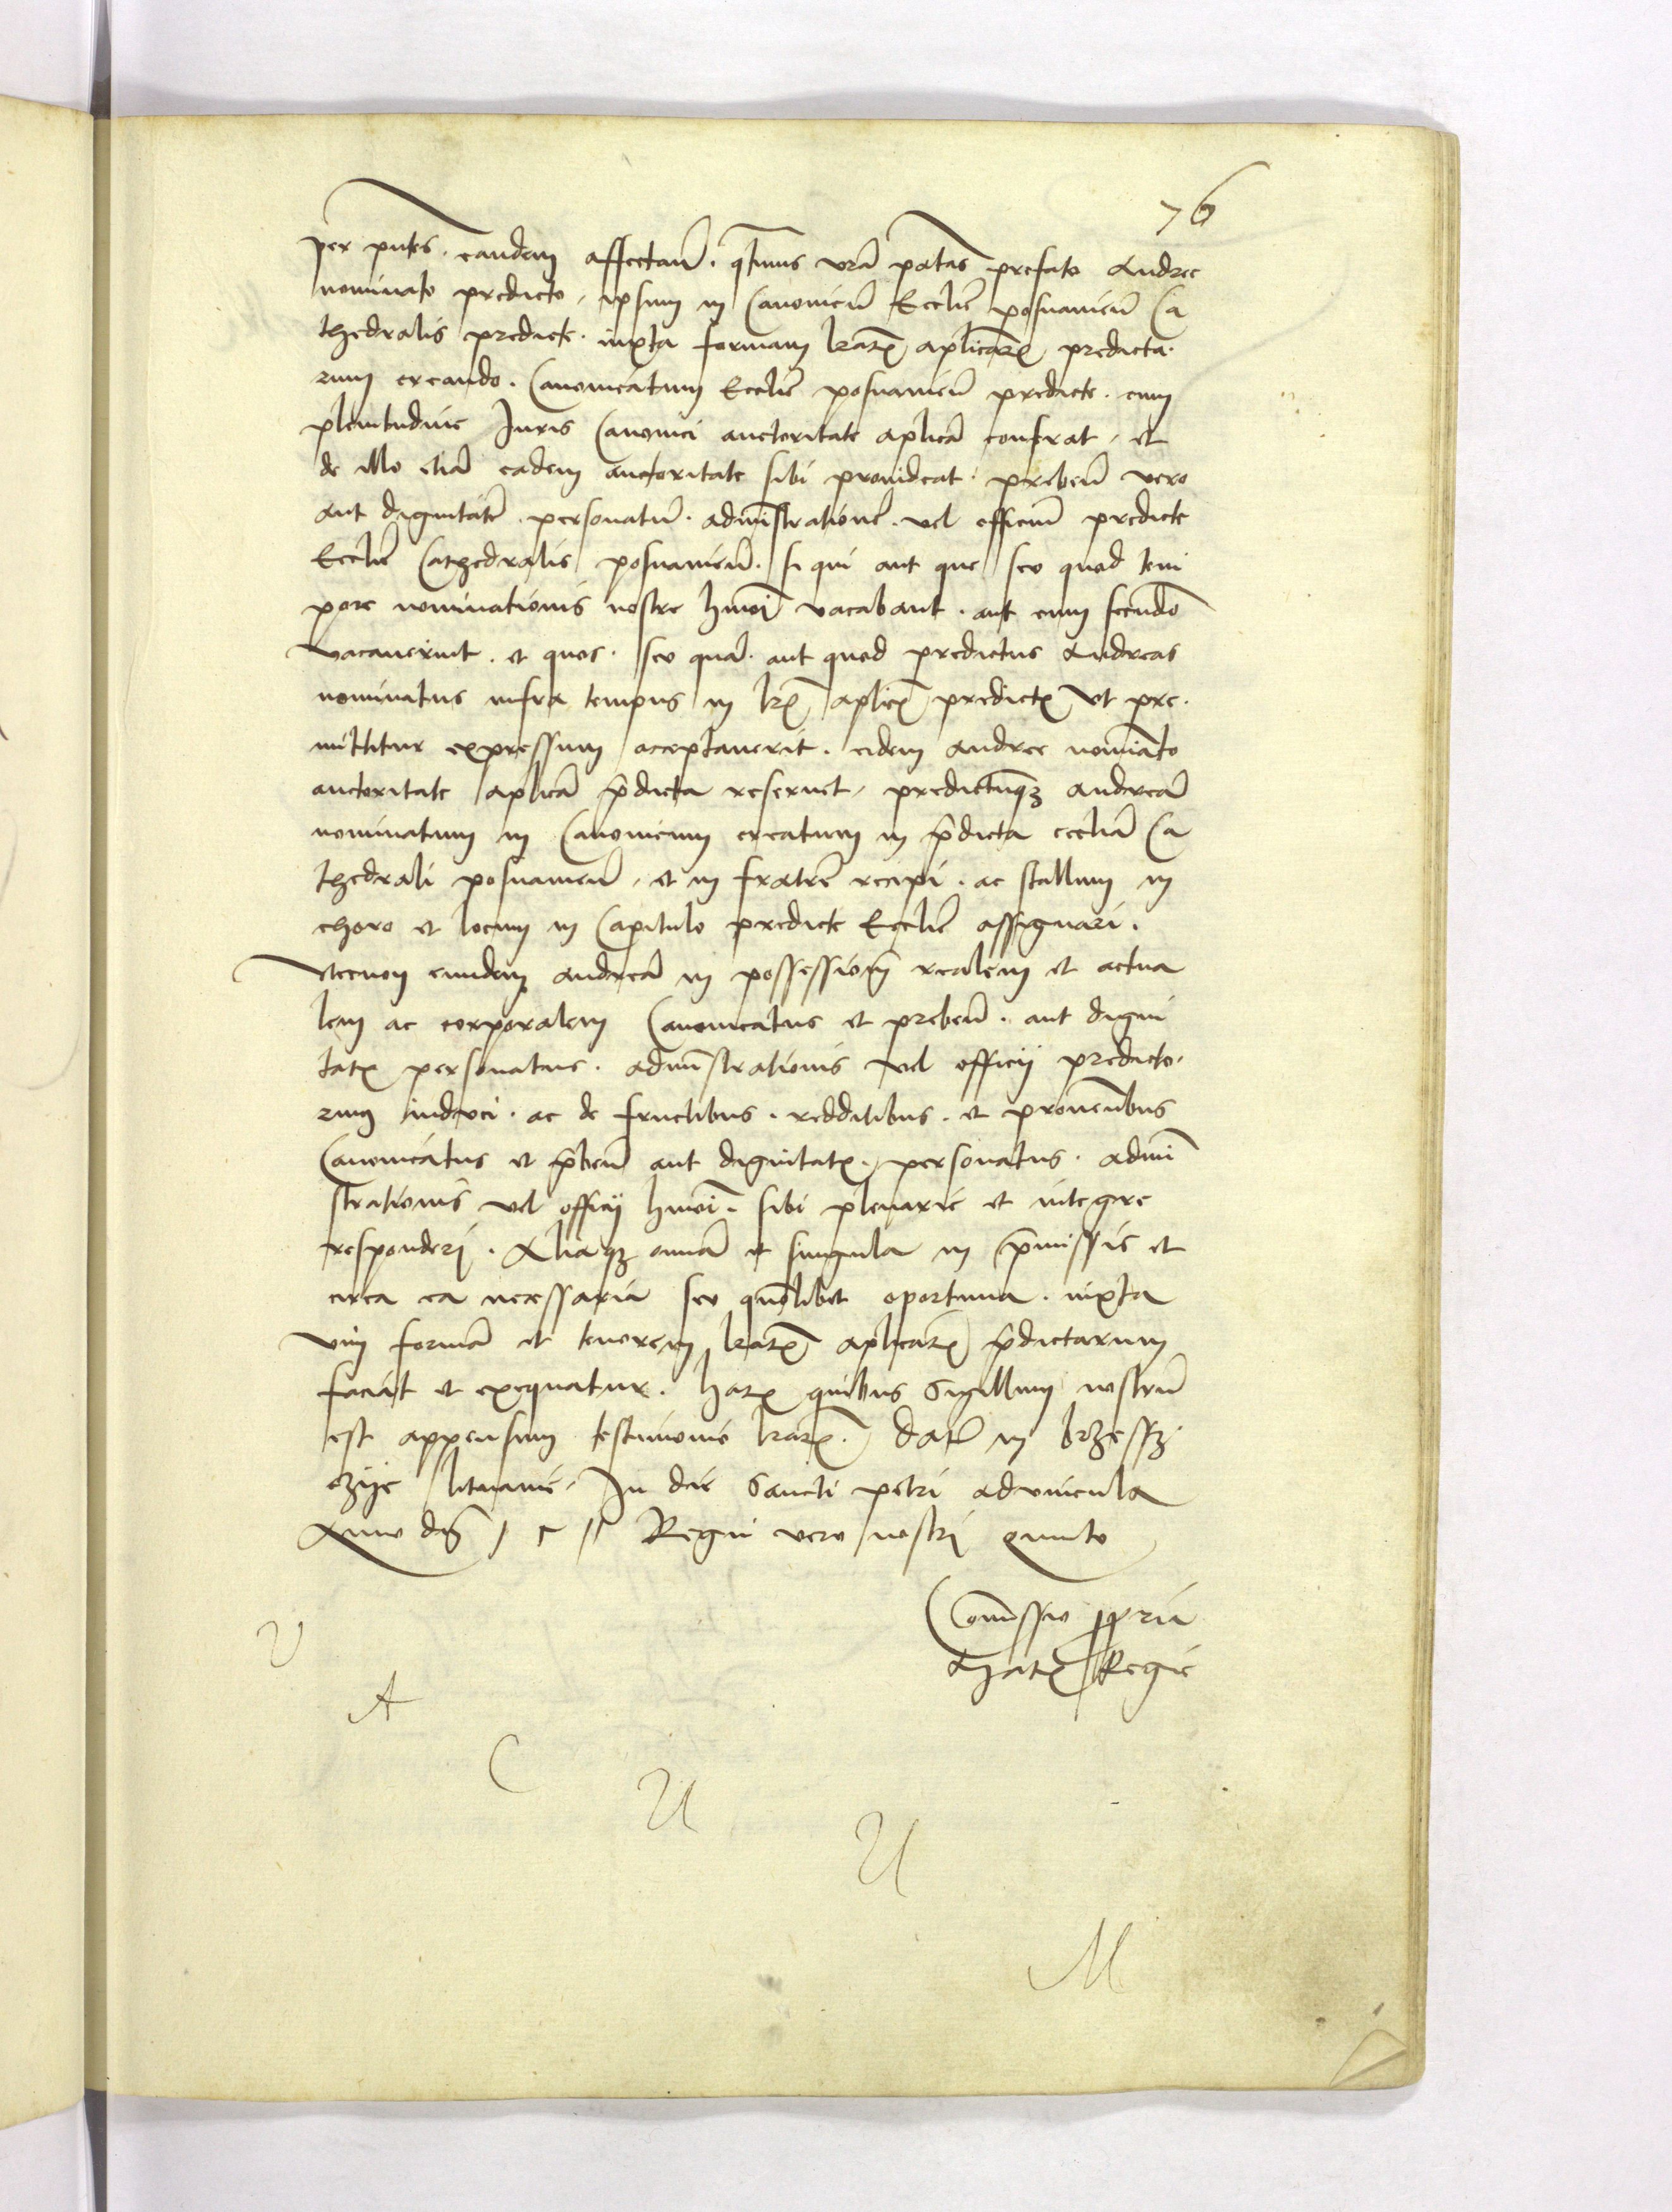 76
per pntes. eandem affectan̄. qtinus vrā p̄atas prefato Andree
nominato predicto, ipsum in Canonicū Ecclie posnanień Ca
thedralis predicte. iuxta formam lrarꝫ aplicarꝫ predicta-
rum creando. Canonicatum Ecclie posnanień predicte. cum
plenitudine Iuris Canonici auctoritate aplica conferat, et
de illo etiā eadem auctoritate sibi prouideat. prebeń vero
aut dignitatē. personatū. administrationē. vel officiū predicte
Ecclie Cathedralis posnanień. si qui aut que seo quod tem
pore nominationis nostre hmoī vacabant. aut cum secundo
vacauerint. et quos. seo quā. aut quod predictus Andreas
nominatus infra tempus in lrꝭ aplicꝭ predictꝭ vt pre-
mittitur expressum acceptauerit. eidem andree nomiāto
auctoritate aplica p̄dicta reseruet, predictūqꝫ andreā
nominatum in Canonicum creatum in p̄dicta ecclia Ca
thedrali posnanień, et in fratrē recipi. ac stallum in
choro et locum in Capitulo predicte Ecclie assignari.
Necnon eundem andreā in possessionē realem et actua
lem ac corporalem Canonicatus et prebeń. aut digni
tatꝭ personatus. administrationis vel officij predicto-
rum induci. ac de fructibus. redditibus. et prouentibus
Canonicatus et p̄beń aut dignitatꝭ. personatus. admi
strationis vel officij hmoi. sibi plenarie et integre
responderi. Aliaqꝫ omnia et singula in p̄missis et
circa ea necessaria seo quomōlibet oportuna. iuxta
vim formā et tenorem lrarꝫ aplicarꝫ p̄dictarum
faciat et exequatur. harꝫ quibus Sigillum nostrū
est appensum testimonio lrarꝫ. Datū in brzessz
czije litwanie. In die Sancti petri ad vincula
Anno dnī Regni vero nostri quinto
Comissio ppria
Mtatꝭ Regie
V
A
C
U
U
M